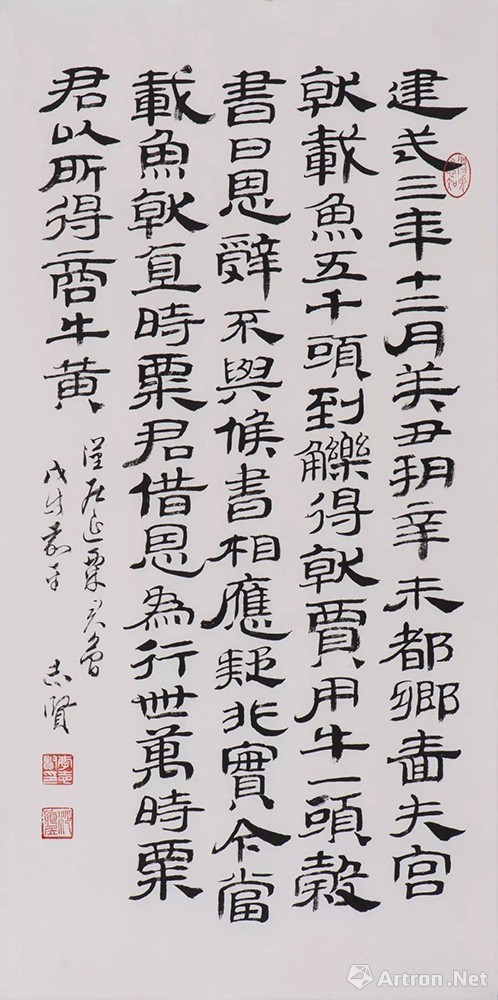 建武三年十二月癸丑朔辛未都鄉嗇夫宮
就載魚五千頭到觻得就賈用牛一頭穀
書曰恩辭不與候書相應疑非實今當
載魚就直時粟君借恩為行世萬時粟
君以所得商牛黃
漢居延粟君
戊戌 志賢
Artron.Net